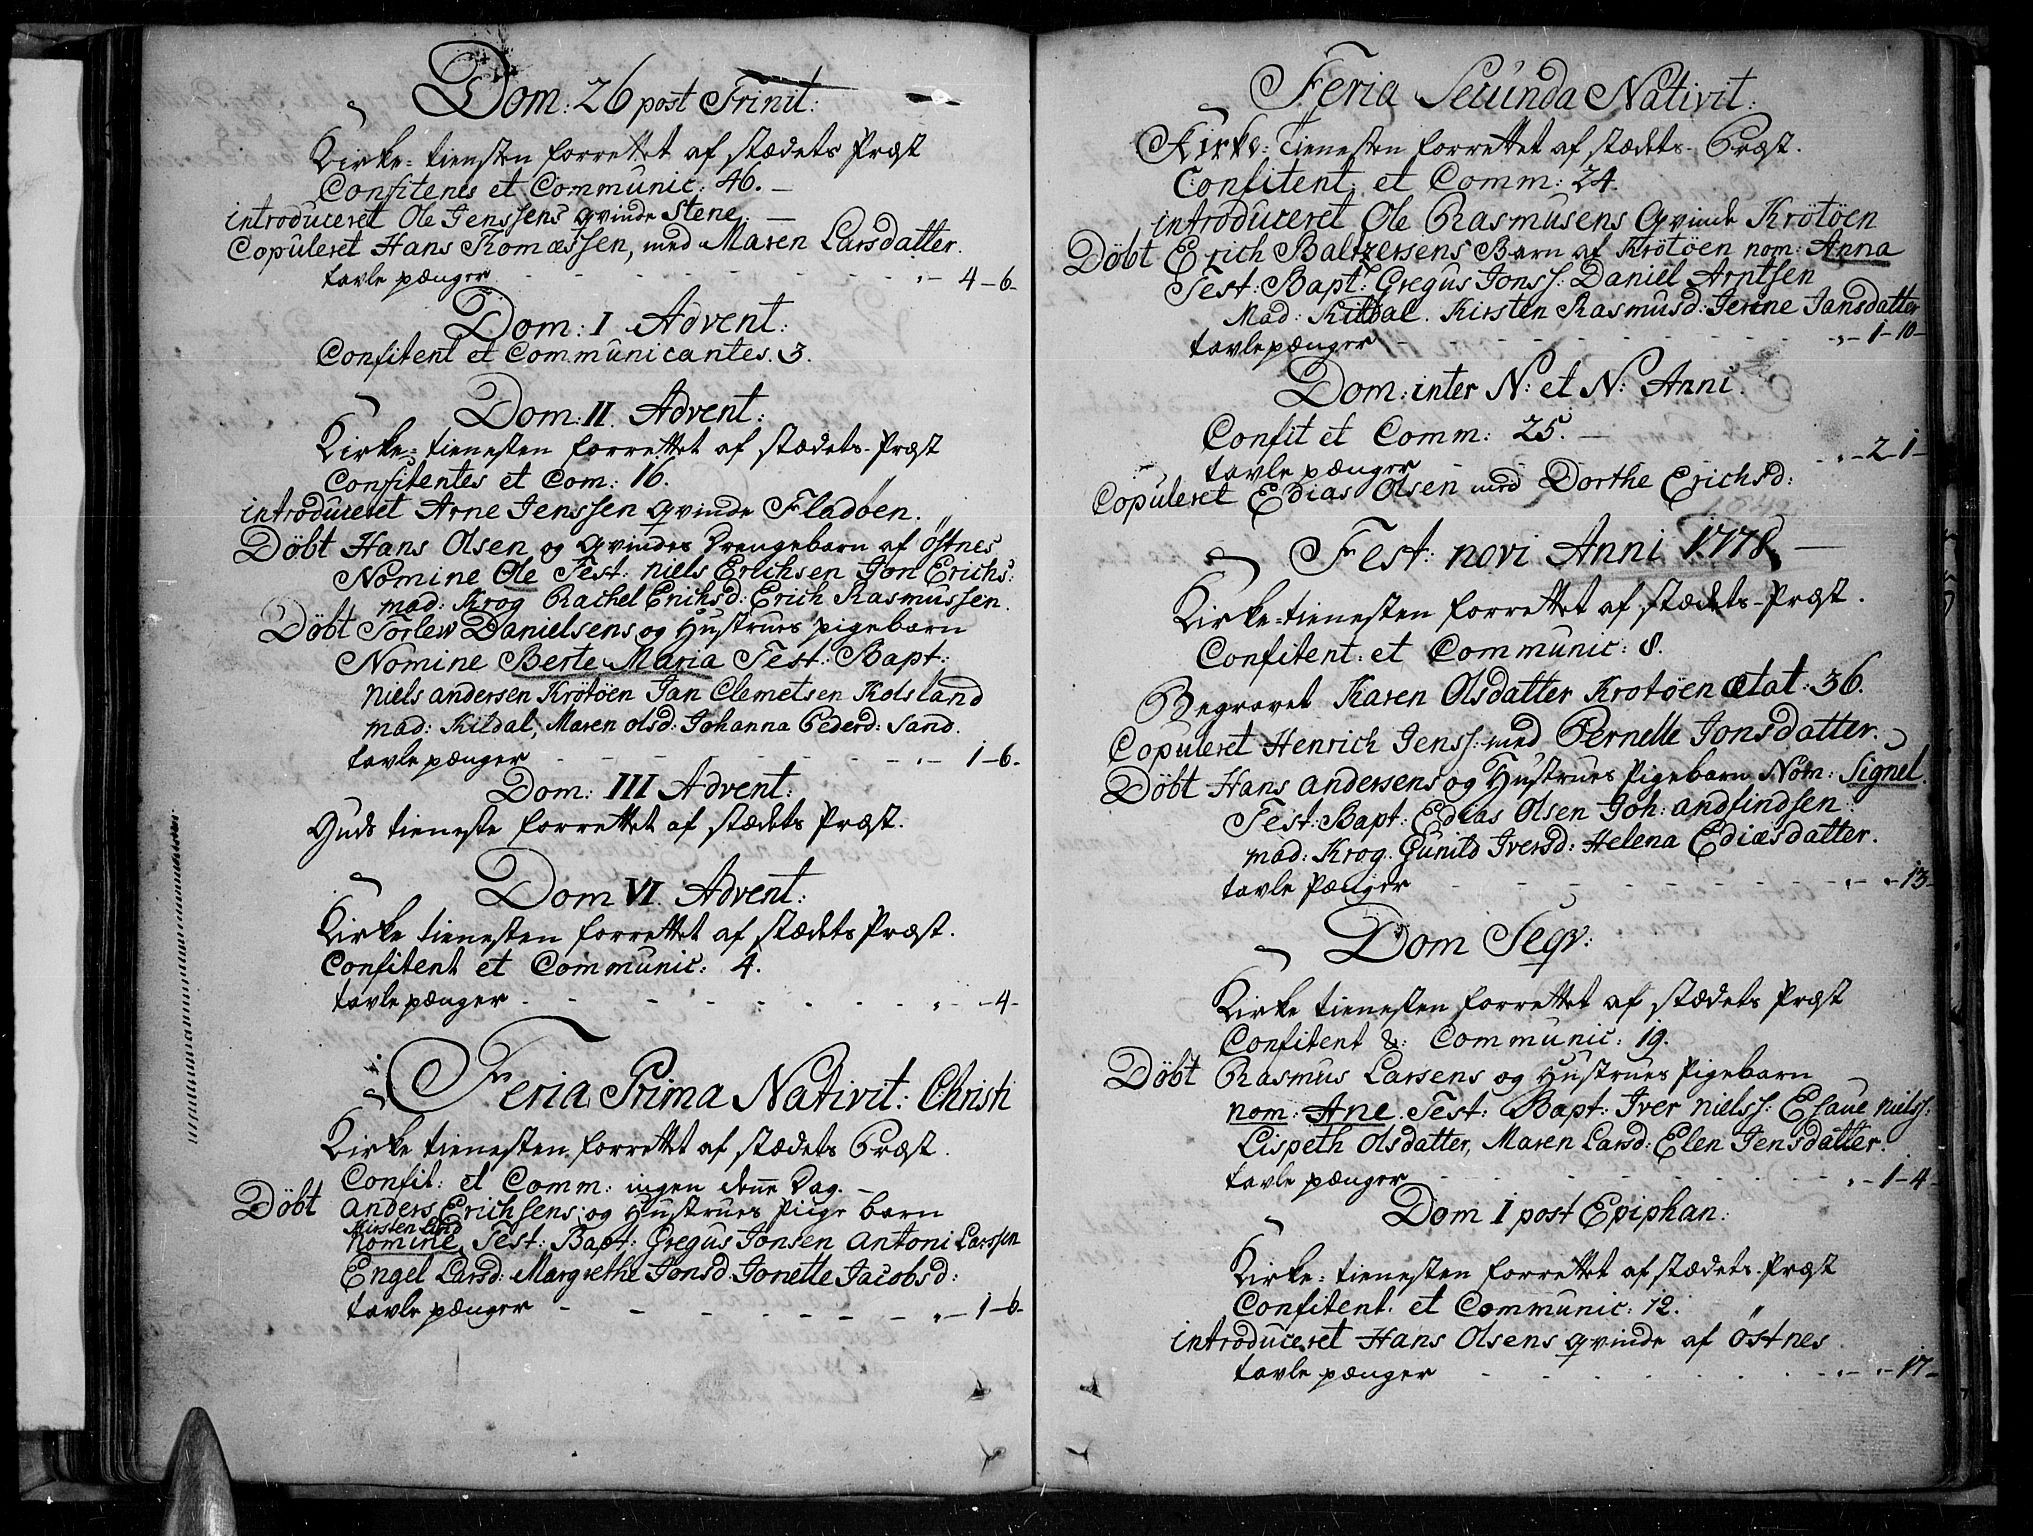 Dom: 26 post Trinit:
Kirke=tienesten forrettet af stædets Præst
Confitenes et Communic: 46. —
introduceret Ole Jenssens qvinde Stene. —
Copuleret Hans Thomæssen, med Maren Larsdatter.
tavle pænger - - - „ - 4 - 6 -
Dom: I Advent:
Confitent et Communicantes. 3.
Dom: II. Advent:
Kirke=tienesten forrettet af stædets Præst
Confitentes et Com: 16.
introduceret Arne Jenssen qvinde Fladöen.
Döbt Hans Olsen og Qvindes Drengebarn af Östnes
Nomine Ole Test: Niels Erichsen Jon Erichs:
mad: Krog Rachel Erichsd: Erich Rasmussen.
Döbt Torlew Danielsens og Hustrues pigebarn
Nomine Berte Maria Test: Bapt:
Niels andersen Krötöen Jan Clemetsen Kolsland
mad: Kildal, Maren olsd: Johanna Pederd: Sand.
tavle pænger - - - „ - 1 - 6 -
Dom: III Advent:
Guds tieneste forrettet af stædets Præst.
Dom VI. Advent:
Kirke tienesten forrettet af stædets Præst.
Confitent et Communic: 4.
tavle pænger - - - „ - - 4 -
Feria Prima Nativit: Christi
Kirke tienesten forrettet af stædets Præst.
Confit: et Comm: ingen denne Dag. —
Döbt Anders Erichsens og Hustrues Piige barn
Kirsten
Nomine, Test: Bapt: Gregus Jonsen Antoni Larssen
Engel Larsd: Margrethe Jonsd: Jonette Jacobsd:
tavle pænger - - - „ - 1 - 6 -
Feria Secunda Nativit:
Kirke=tienesten forrettet af stædets Præst.
Confitent: et Comm: 24.
introduceret Ole Rasmusens Qvinde Krötöen
Döbt Erich Baltzersens Barn af Krötöen nom: Anna
Test: Bapt: Gregus Jonss: Daniel Arntsen
Mad: Kildal. Kirsten Rasmusd: Jerine Jansdatter
tavlepænger - - - „ - 1 - 10 -
Dom: inter N: et N: Anni.
Confit et Comm: 25. —
tavle pænger - - - „ - 2 - 1 -
Copuleret Edias Olsen med Dorthe Erichsd:
Fest: novi Anni 1778 —
Kirke=tienesten forrettet af stædets Præst.
Confitent: et Communic: 8.
Begravet Karen Olsdatter Krötöen ætat: 36.
Copuleret Henrich Jenss: med Pernelle Jonsdatter.
Döbt Hans andersens og Hustrues Pigebarn Nom: Signel.
Test: Bapt: Edias Olsen Joh: andfindsen:
mad: Krog. Gunild Iversd: Helena Ediæsdatter.
tavle Pænger - - - „ - „ - 13 -
Dom Seqv:
Kirke tienesten forrettet af stædets Præst
Confitent &: Communic: 19.
Döbt Rasmus Larsens og Hustrues Pigebarn
nom: Ane Test: Bapt: Iver Nielss: Esaue Nielss:
Lispeth Olsdatter, Maren Larsd: Elen Jensdatter.
tavle pænger - - - „ - 1 - 4 -
Dom I post Epiphan:
Kirke=tienesten forrettet af stædets Præst
Confitent. et Communic: 12.
introduceret Hans Olsens qvinde af Östnes
tavle pænger - - - „ - „ - 17 -